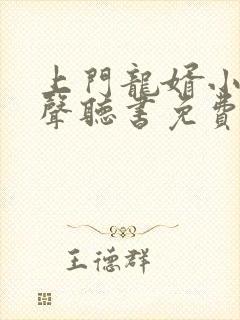 上門龍婿小
聲聽書免費
王德群